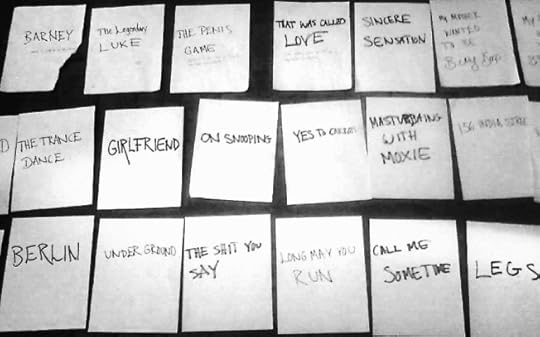 BARNEY
The Legendary
LUKE
THE PENIS
GAME
THAT WAS CALLED
LOVE
SINCERE
SENSATION
MY MOTHER
WANTED
TO BE
THE TRANCE
DANCE
GIRLFRIEND
ON SNOOPING
YES TO
MASTURBATING
WITH
MOXIE
156 INDIA
BERLIN
UNDERGROUND
THE SHIT YOU
SAY
LONG MAY YOU
RUN
CALL ME
SOMETIME
LEGS